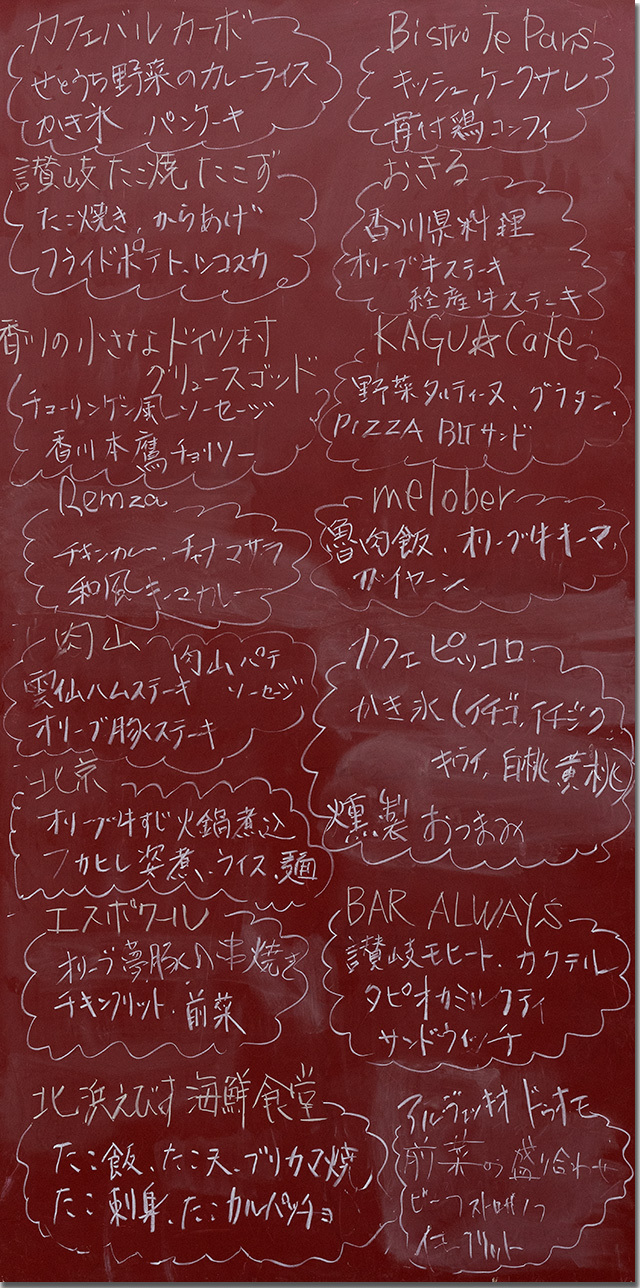 カフェバル カーボ
せとうち野菜のカレーライス
かき氷 、パンケーキ
讃岐たこ焼 たこず
たこ焼き、からあげ
フライドポテト、
香川の小さなドイツ村
グリュースゴッド
チューリンゲン風ソーセージ
香川本鷹チョリソー
Remza
チキンカレー、チャナマサラ
和風キーマカレー
肉山
肉山パテ
雲仙ハムステーキ ソーセージ
オリーブ豚ステーキ
北京
オリーブ牛すじ火鍋煮込
フカヒレ姿煮、ライス、麺
エスポワール
オリーブ夢豚の串焼き
チキンフリット、前菜
北浜えびす海鮮食堂
たこ飯、たこ天、ブリカマ焼
たこ刺身、たこカルパッチョ
Bistro Je Pars
キッシュ、ケークサレ
骨付鶏コンフィ
おきる
香川県料理
オリーブ牛ステーキ
経産牛ステーキ
KAGUA Cafe
野菜タルティーヌ、グラタン、
PIZZA BLTサンド
melober
魯肉飯、オリーブ牛キーマ、
ガイヤーン、
カフェ ピッコロ
かき氷(イチゴ、イチジク、
キウイ、白桃 黄桃)
燻製おつまみ
BAR ALWAYS
讃岐モヒート、カクテル
タピオカミルクティ
サンドウィッチ
アルヴェッキオ ドゥオモ
前菜の盛り合わせ
ビーフストロガノフ